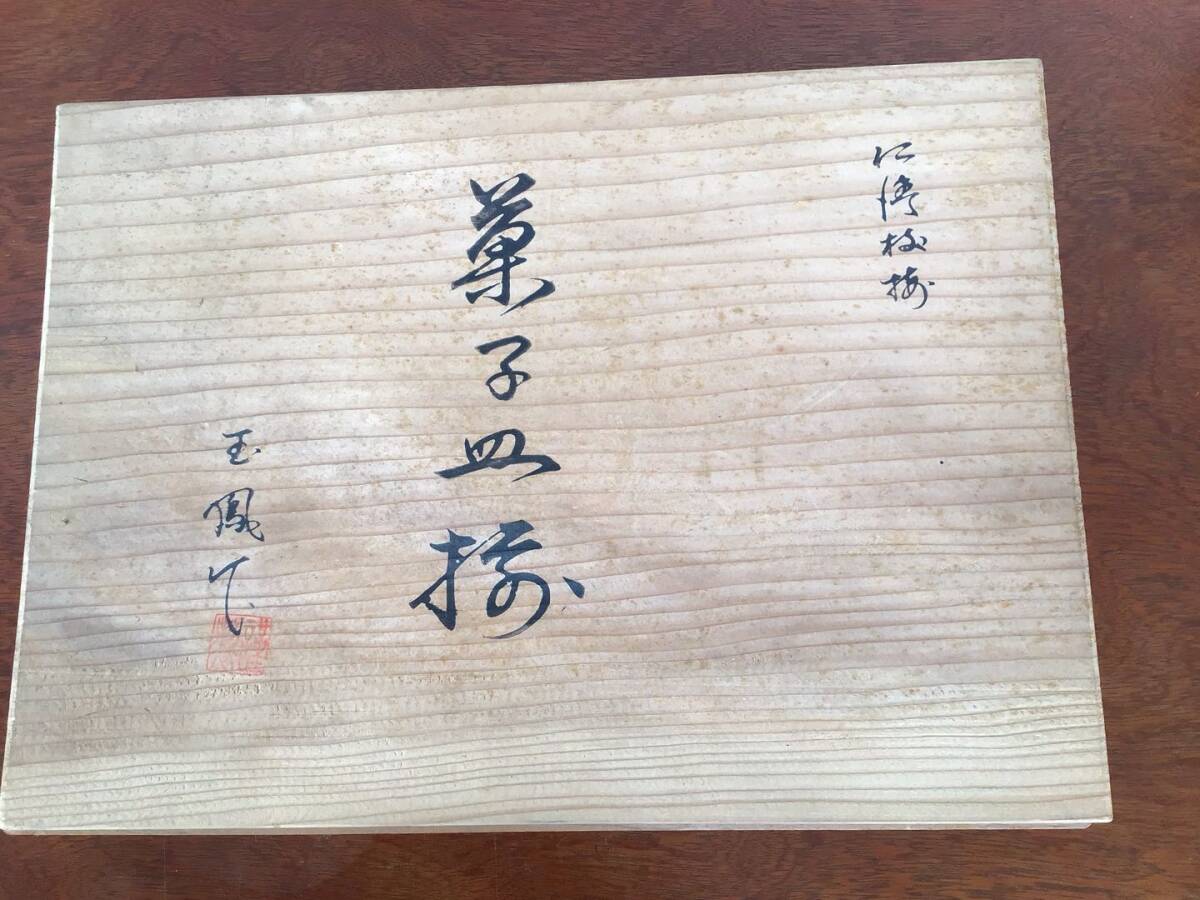 仁清枝梅
菓子皿揃
玉鳳作